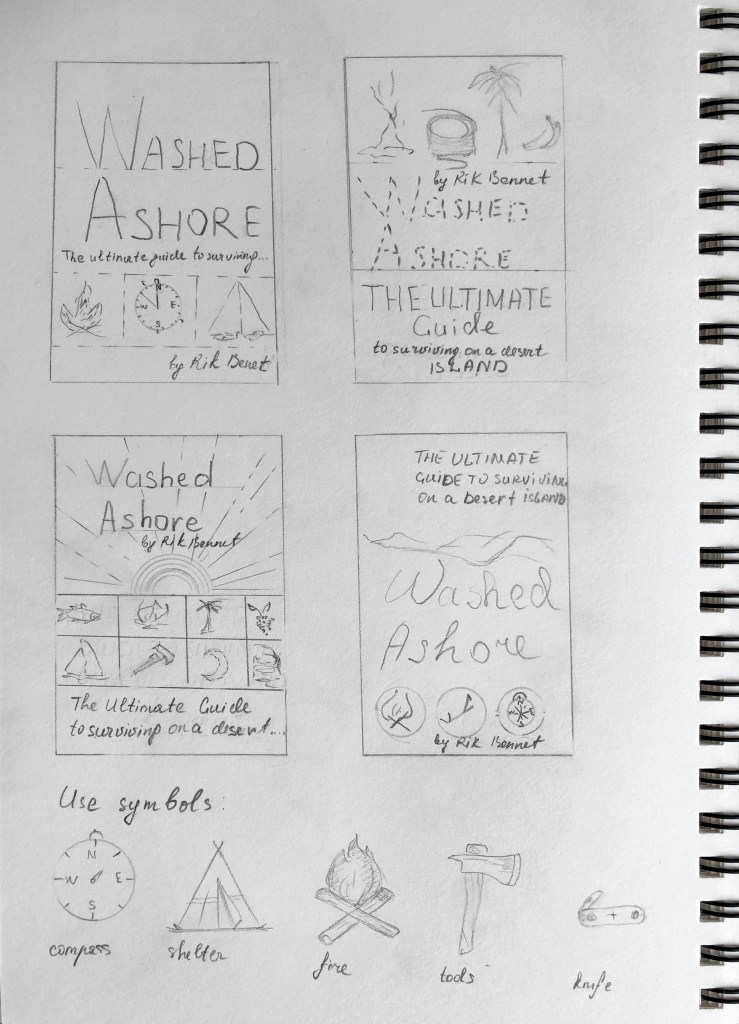 WASHED
ASHORE
The ultimate guide to surviving...
N
W E
S
by Rik Benet
by Rik Bennet
WASHED
ASHORE
THE ULTIMATE
Guide
to surviving on a desert
ISLAND
Washed
Ashore
by Rik Bennet
The Ultimate Guide
to surviving on a desert...
THE ULTIMATE
GUIDE TO SURVIVING
on a Desert ISLAND
Washed
Ashore
by Rik Bennet
Use symbols:
N
W E
S
compass
shelter
fire
tools
knife